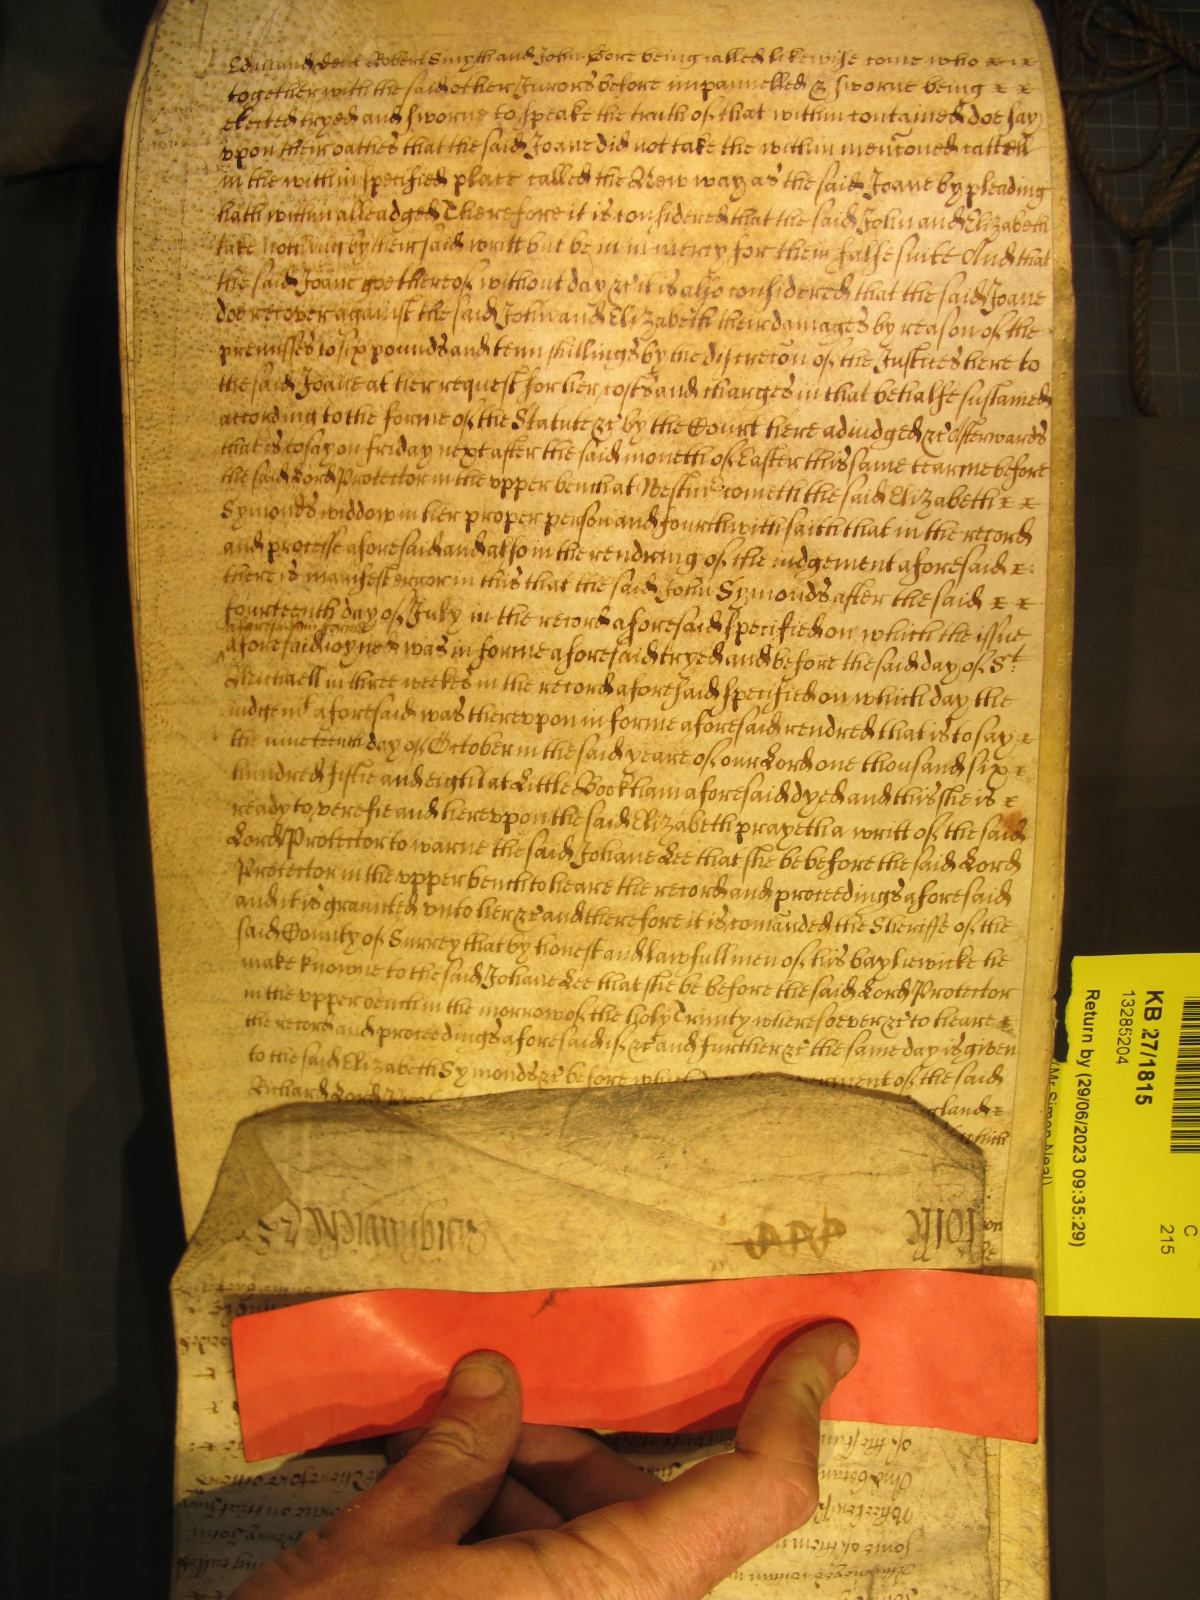 Edmund Dent Robert Smyth and John Gore being called likewise come who x x
together with the said other Jurors before impannelled & sworne being x x
elected tryed and sworne to speake the truth of that within contained doe say
vpon their oathes that the said Joane did not take the within mencõned cattell
in the within specified place called the New way as the said Joane by pleading
hath within alleadged Therefore it is considered that the said John and Elizabeth
take nothing by their said writt but be in mercy for their false suite And that
the said Joane goe thereof without day &c it is also considered that the said Joane
doe recover against the said John and Elizabeth their damages by reason of the
premisses to six pounds and tenn shillings by the discrecõn of the Justices here to
the said Joane at her request for her costs and charges in that behalfe sustained
according to the forme of the Statute &c by the Court here adiudged &c Afterwards
that is to say on friday next after the said moneth of Easter this same tearme before
the said Lord Protector in the vpper bench at Westmr cometh the said Elizabeth x x
Symonds widdow in her proper person and fourthwith saith that in the record
and processe aforesaid and also in the rendring of the iudgement aforesaid x
there is manifest error in this that the said John Symonds after the said x x
fourteenth day of July in the record aforesaid specified on which the issue
aforesaid in forme
aforesaid ioyned was in forme aforesaid tryed and before the said day of St
Michaell in three weekes in the record aforesaid specified on which day the
iudgemt aforesaid was therevpon in forme aforesaid rendred that is to say x
the nineteenth day of October in the said yeare of our Lord one thousand six x
hundred fiftie and eight at Little Bookham aforesaid dyed and this she is x
ready to verefie and herevpon the said Elizabeth prayeth a writt of the said
Lord Protector to warne the said Johane Lee that she be before the said Lord
Protector in the vpper bench to heare the record and proceedings aforesaid
and it is graunted vnto her &c and therefore it is comãnded the Sheriffe of the
said County of Surrey that by honest and lawfull men of his bayliewicke he
make knowne to the said Johane Lee that she be before the said Lord Protector
in the vpper bench in the morrow of the holy Trinity wheresoever &c to heare x
the record and proceedings aforesaid if &c and further &c the same day is given
to the said Elizabeth Symonds &c before which of the said
Richard Lord gland x
which
KB 27/1815
13285204
Return by (29/06/2023 09:35:29)
(Mr Simon Neal)
C
215